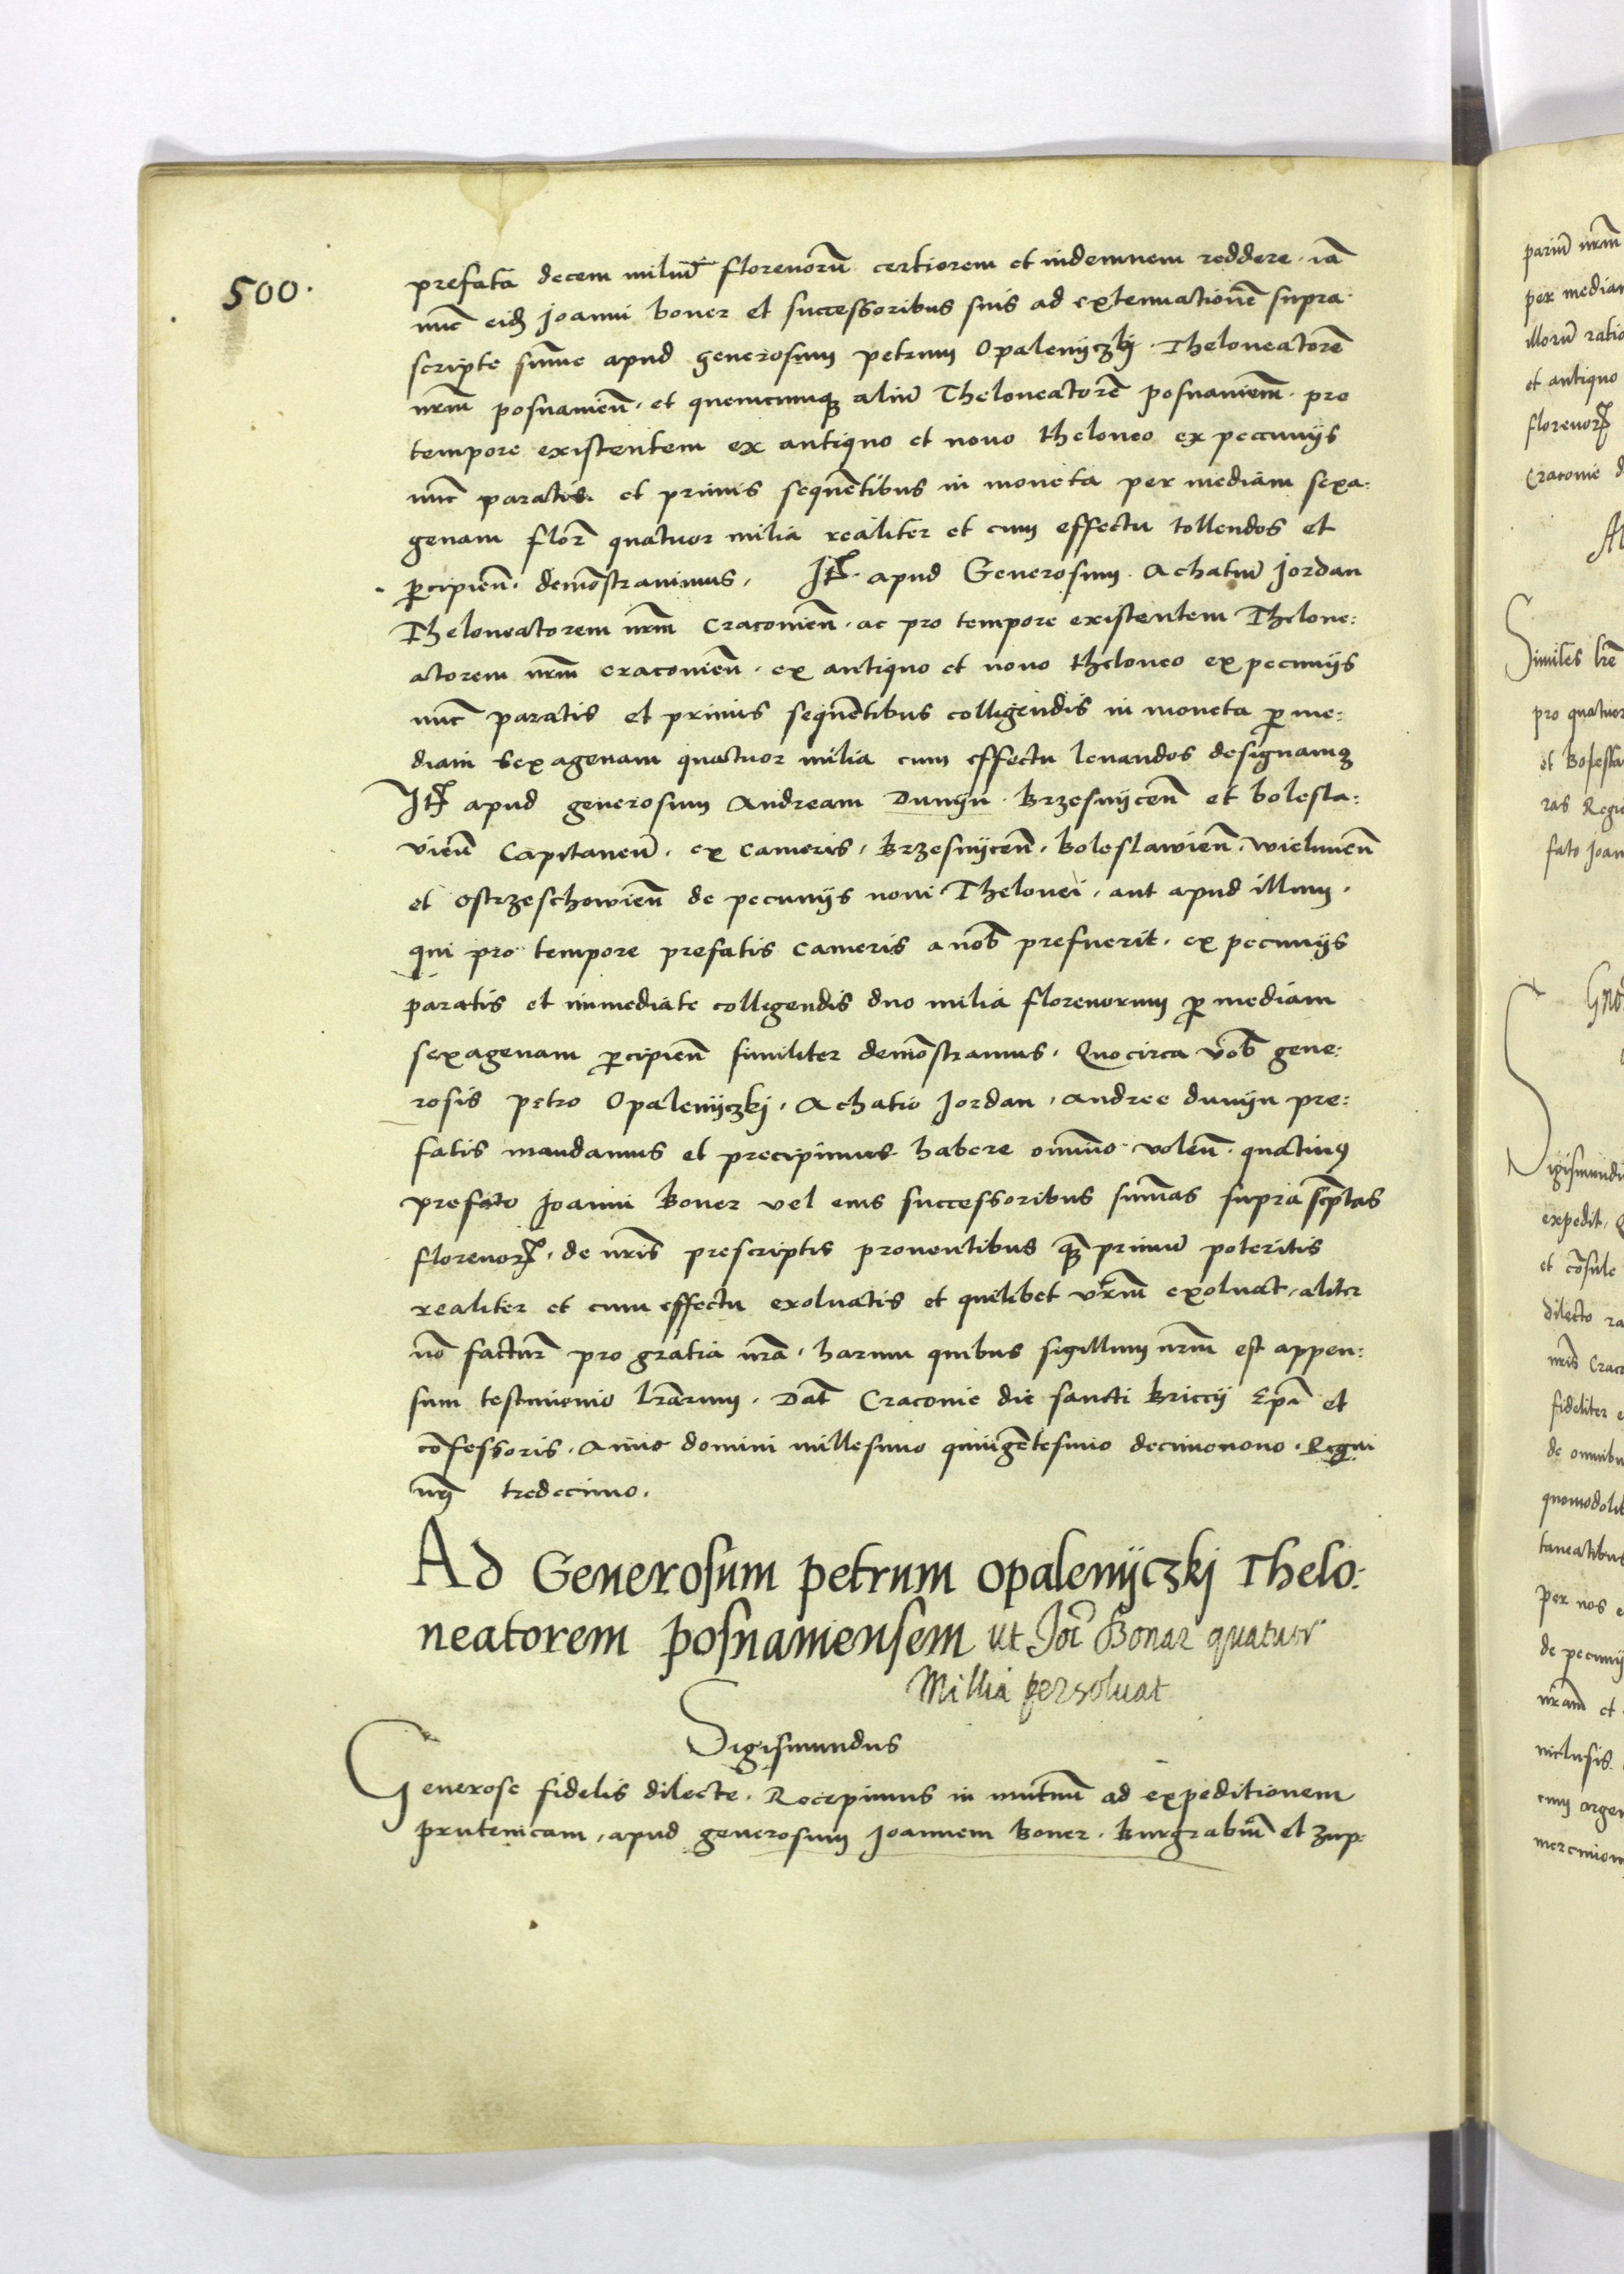 500.
prefata decem miliũ florenorũ certiorem et indemnem reddere. iã
nũc eidẽ Joanni boner et successoribus suis ad extenuationẽ supra
scripte sũme apud generosum petrum Opalenijczkj. Theloneatorẽ
nr̃m posnanieñ. et quemcumqꝫ aliũ Theloneatorẽ posnanieñ. pro
tempore existentem ex antiquo et nouo theloneo ex pecunijs
nũc paratis et primis sequẽtibus in moneta per mediam sexa:
genam flor̃ quatuor milia realiter et cum effectu tollendos et
ꝑcipieñ. demõstrauimus. Itẽ apud Generosum Achatiũ Jordan
Theloneatorem nr̃m Cracouieñ. ac pro tempore existentem Thelone:
atorem nr̃m cracouieñ. ex antiquo et nouo theloneo ex pecunijs
nũc paratis et primis sequẽtibus colligendis in moneta ꝑ me:
diam sexagenam quatuor milia cum effectu leuandos designamꝰ
Itẽ apud generosum Andream Dunijn. Brzesnijceñ et bolesla:
uieñ Capitaneũ. ex cameris. Brzesnijceñ. Boleslawieñ. wieluneñ
et Ostrzeschowieñ de pecunijs noui Thelonei. aut apud illum.
qui pro tempore prefatis cameris a nob̃ prefuerit. ex pecunijs
paratis et immediate colligendis duo milia florenorum ꝑ mediam
sexagenam ꝑcipieñ similiter demõstramus. Quocirca vob̃ gene:
rosis petro Opalenijczkj. Achatio Jordan. Andree dunijn pre:
fatis mandamus et precipimus habere omnino voleñ. quatinꝰ
prefato Joanni Boner vel eius successoribus sum̃as supra scp̃tas
florenorꝝ. de nr̃is prescriptis prouentibus qꝫ primũ poteritis
realiter et cum effectu exoluatis et quilibet vr̃m exoluat. aliter
nõ factur̃ pro gratia nr̃a. harum quibus sigillum nr̃m est appen:
sum testimonio lr̃arum. Dat̃ Cracouie die sancti Briccij Ep̃i et
cõfessoris. Anno domini millesimo quingẽtesimo decimonono. Regni
nr̃i tredecimo.
Ad Generosum petrum Opalenijczkj Thelo:
neatorem posnaniensem ut Joi͂ Bonar quatuor
Millia persoluat
Sigismundus
Generose fidelis dilecte. Recepimus in mutuũ ad expeditionem
prutenicam, apud generosum Joannem Boner. Burgrabiũ et zup:
pariũ nr̃m
per mediam
illorũ ratio
et antiquo
florenorꝝ
Cracouie d
Similes lr̃e
pro quatuor
fato Joan
Sigismundu
expedit.
et cõsule
dilecto
nr̃is Crac
fideliter
de omnibu
quomodolib
taneatibus
per nos
de pecunij
nr̃am et